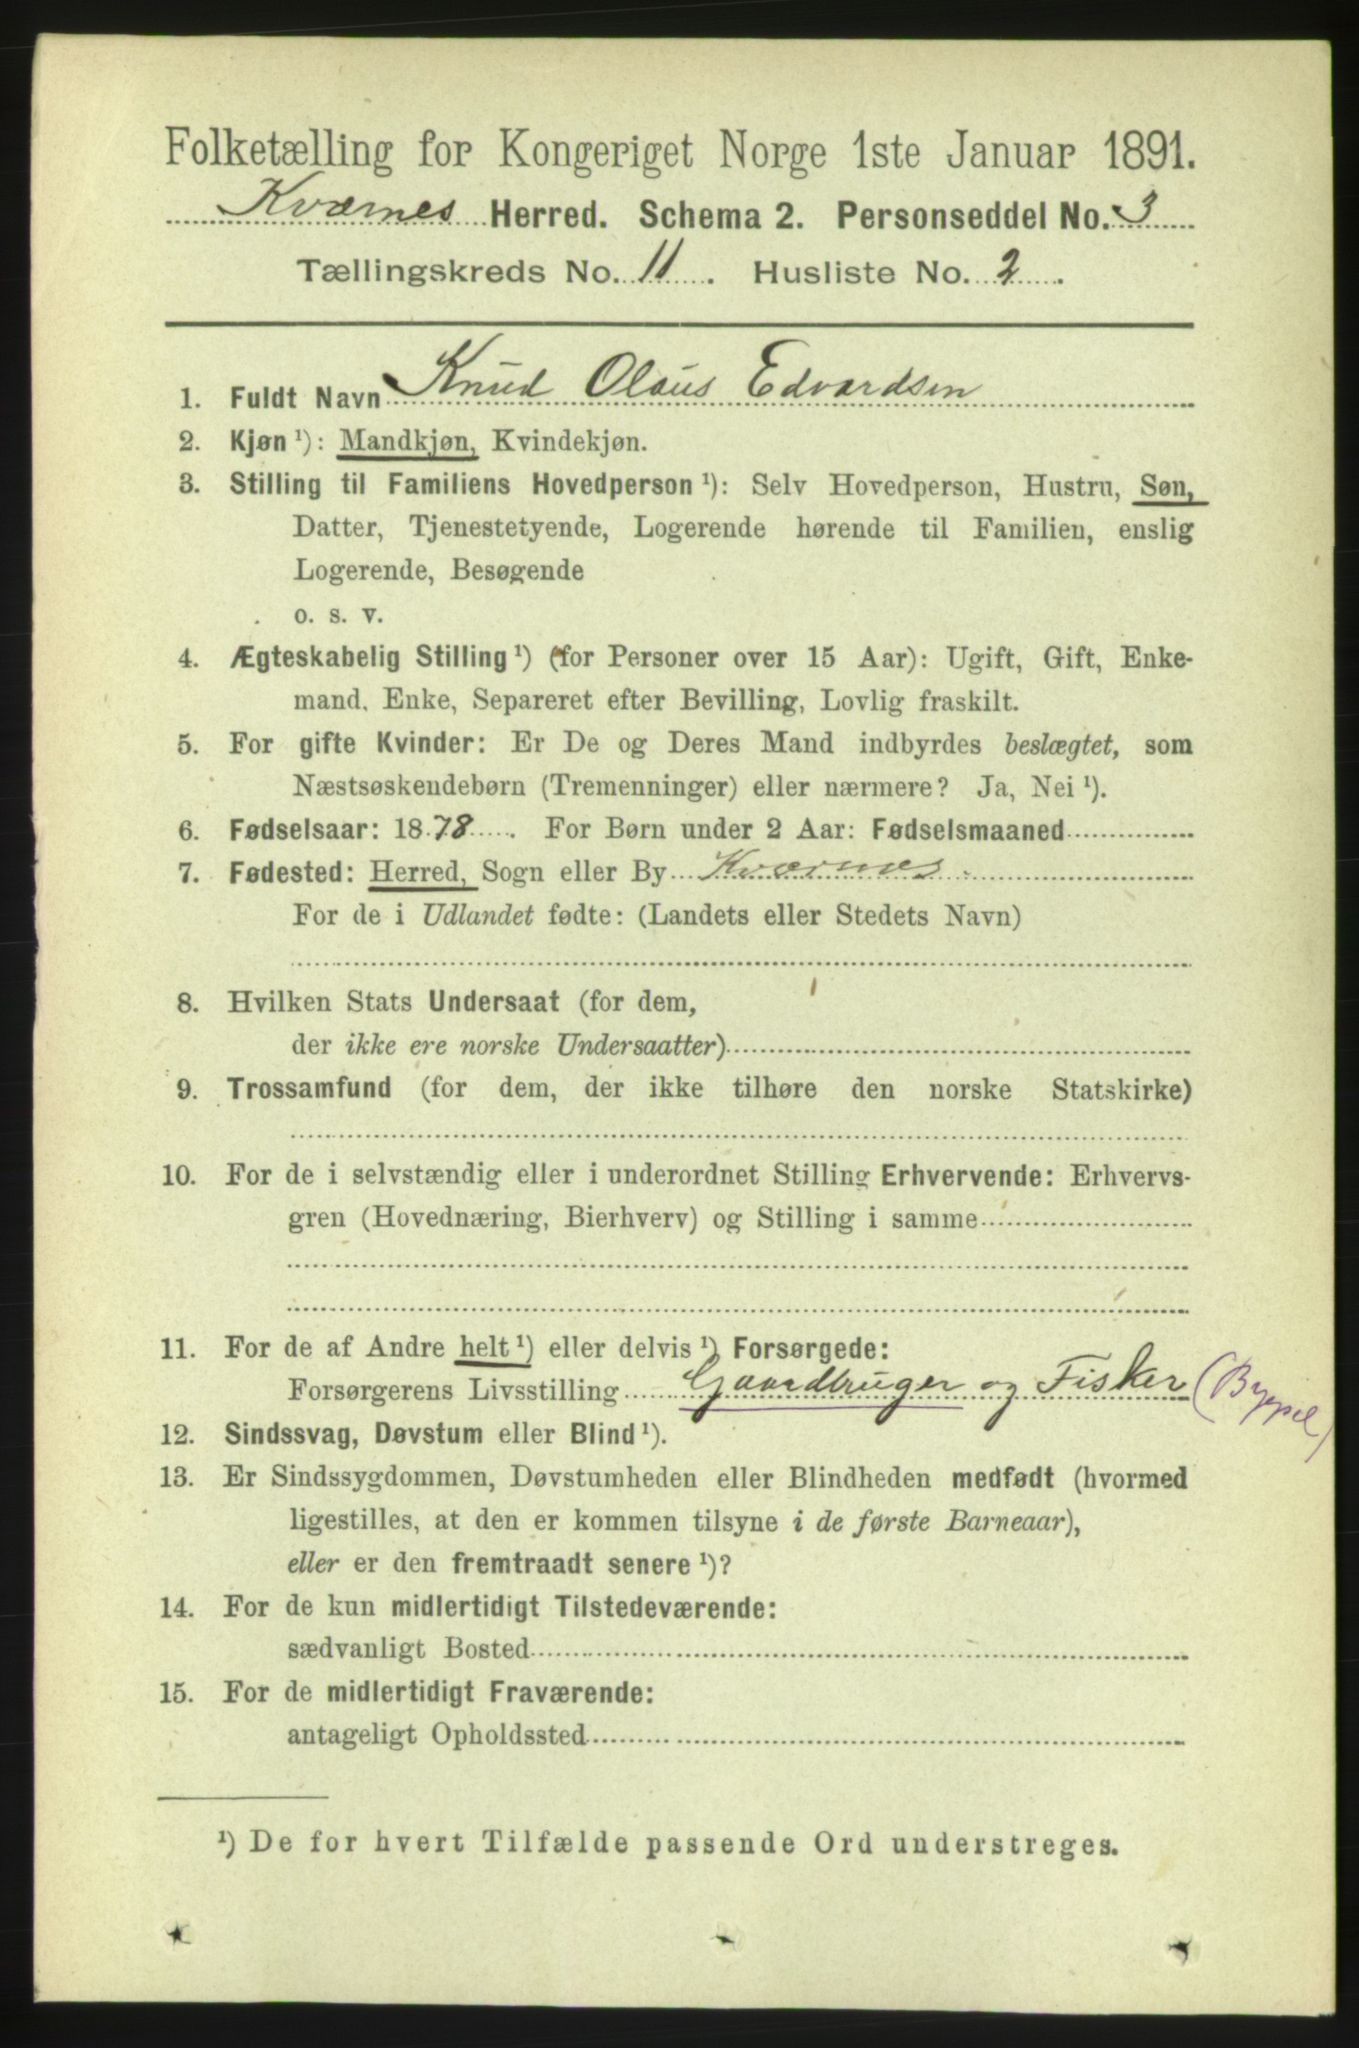 Folketælling for Kongeriget Norge 1ste Januar 1891.
Kværnes Herred. Schema 2. Personseddel No. 3
Tællingskreds No. 11. Husliste No. 2.
1. Fuldt Navn Knud Olaus Edvardsen
2. Kjøn ¹): Mandkjøn, Kvindekjøn.
3. Stilling til Familiens Hovedperson ¹): Selv Hovedperson, Hustru, Søn,
Datter, Tjenestetyende, Logerende hørende til Familien, enslig
Logerende, Besøgende
o. s. v.
4. Ægteskabelig Stilling ¹) (for Personer over 15 Aar): Ugift, Gift, Enke-
mand, Enke, Separeret efter Bevilling, Lovlig fraskilt.
5. For gifte Kvinder: Er De og Deres Mand indbyrdes beslægtet, som
Næstsøskendebørn (Tremenninger) eller nærmere? Ja, Nei ¹).
6. Fødselsaar: 1878. For Børn under 2 Aar: Fødselsmaaned
7. Fødested: Herred, Sogn eller By Kværnes.
For de i Udlandet fødte: (Landets eller Stedets Navn)
8. Hvilken Stats Undersaat (for dem,
der ikke ere norske Undersaatter)
9. Trossamfund (for dem, der ikke tilhøre den norske Statskirke)
10. For de i selvstændig eller i underordnet Stilling Erhvervende: Erhvervs-
gren (Hovednæring, Bierhverv) og Stilling i samme
11. For de af Andre helt ¹) eller delvis ¹) Forsørgede:
Forsørgerens Livsstilling Gaardbruger og Fisker
12. Sindssvag, Døvstum eller Blind ¹).
13. Er Sindssygdommen, Døvstumheden eller Blindheden medfødt (hvormed
ligestilles, at den er kommen tilsyne i de første Barneaar),
eller er den fremtraadt senere ¹)?
14. For de kun midlertidigt Tilstedeværende:
sædvanligt Bosted
15. For de midlertidigt Fraværende:
antageligt Opholdssted
¹) De for hvert Tilfælde passende Ord understreges.